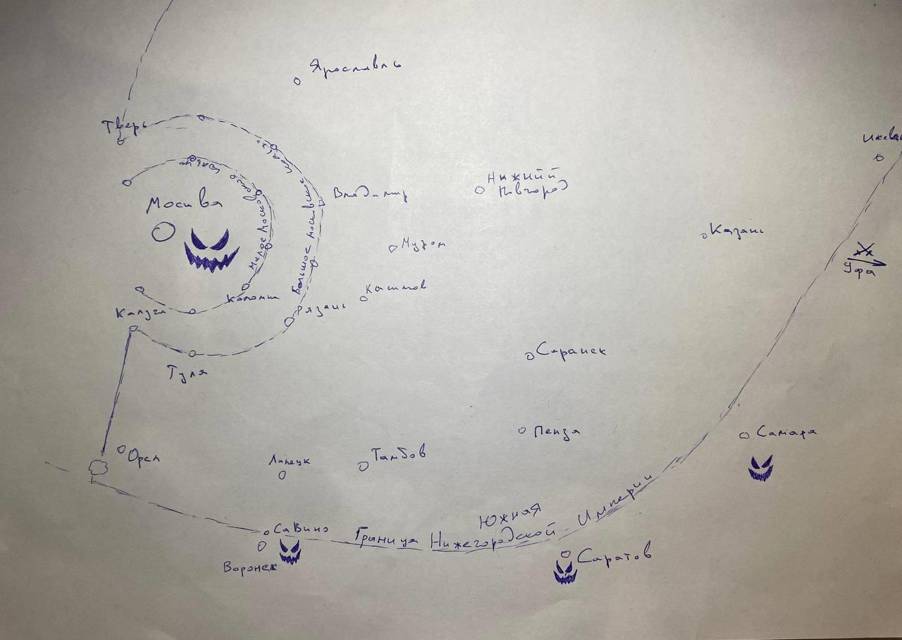 Ярославль
Тверь
Ижевск
Нижний
Новгород
Владимир
Москва
Малое Московское кольцо
Большое Московское кольцо
Муром
Казань
Уфа
Касимов
Коломна
Калуга
Рязань
Саранск
Тула
Пенза
Самара
Орел
Липецк
Тамбов
Савино
Южная
Граница Нижегородской Империи
Воронеж
Саратов